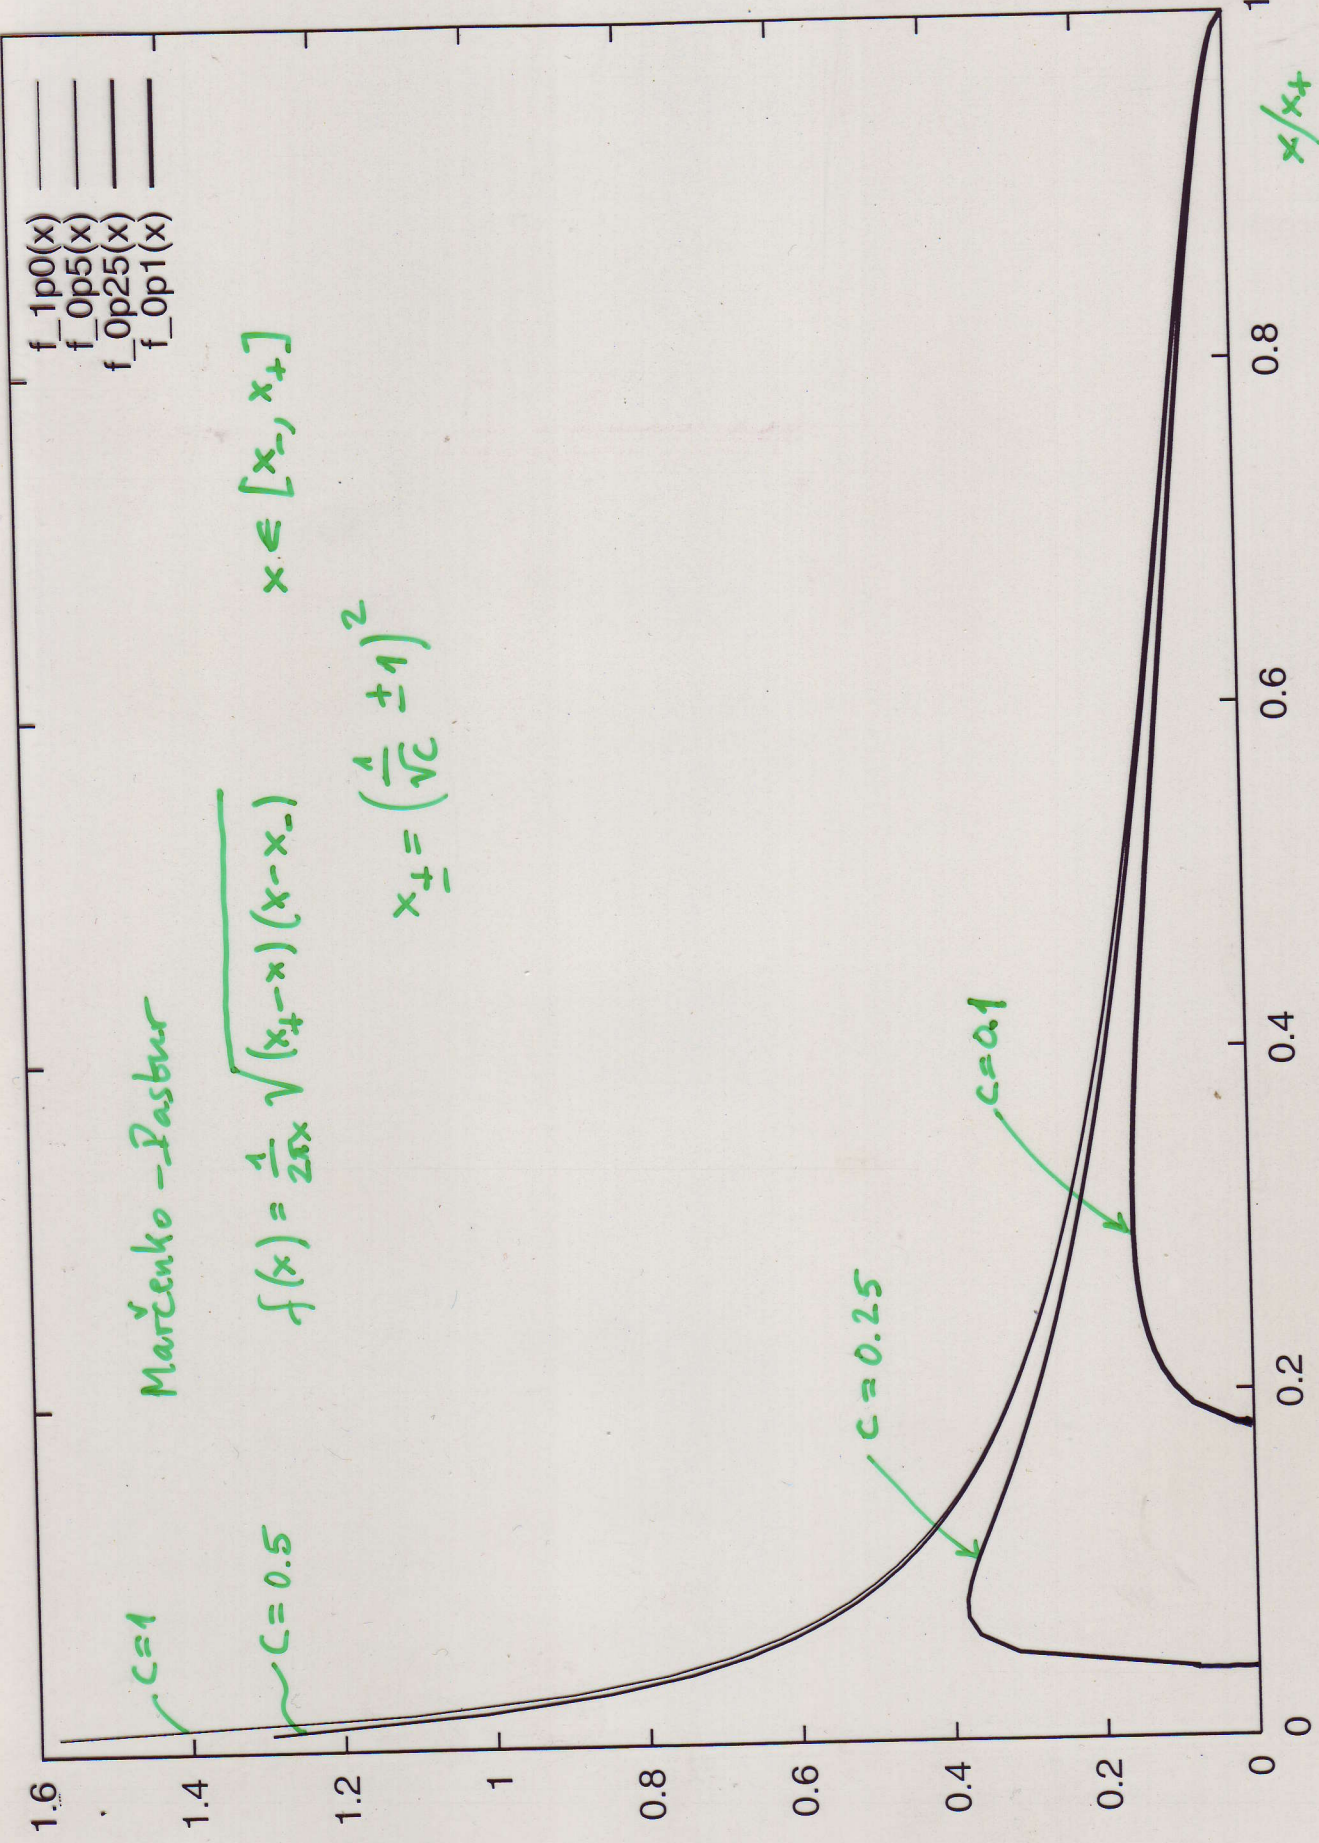 f_1p0(x)
f_0p5(x)
f_0p25(x)
f_0p1(x)
Marčenko-Pastur
f(x) = 1/2πx √(x₊-x)(x-x₋)   x ∈ [x₋, x₊]
x± = (1/√c ± 1)²
c=1
c=0.5
c=0.25
c=0.1
1.6
1.4
1.2
1
0.8
0.6
0.4
0.2
0
0
0.2
0.4
0.6
0.8
1
x/x₊